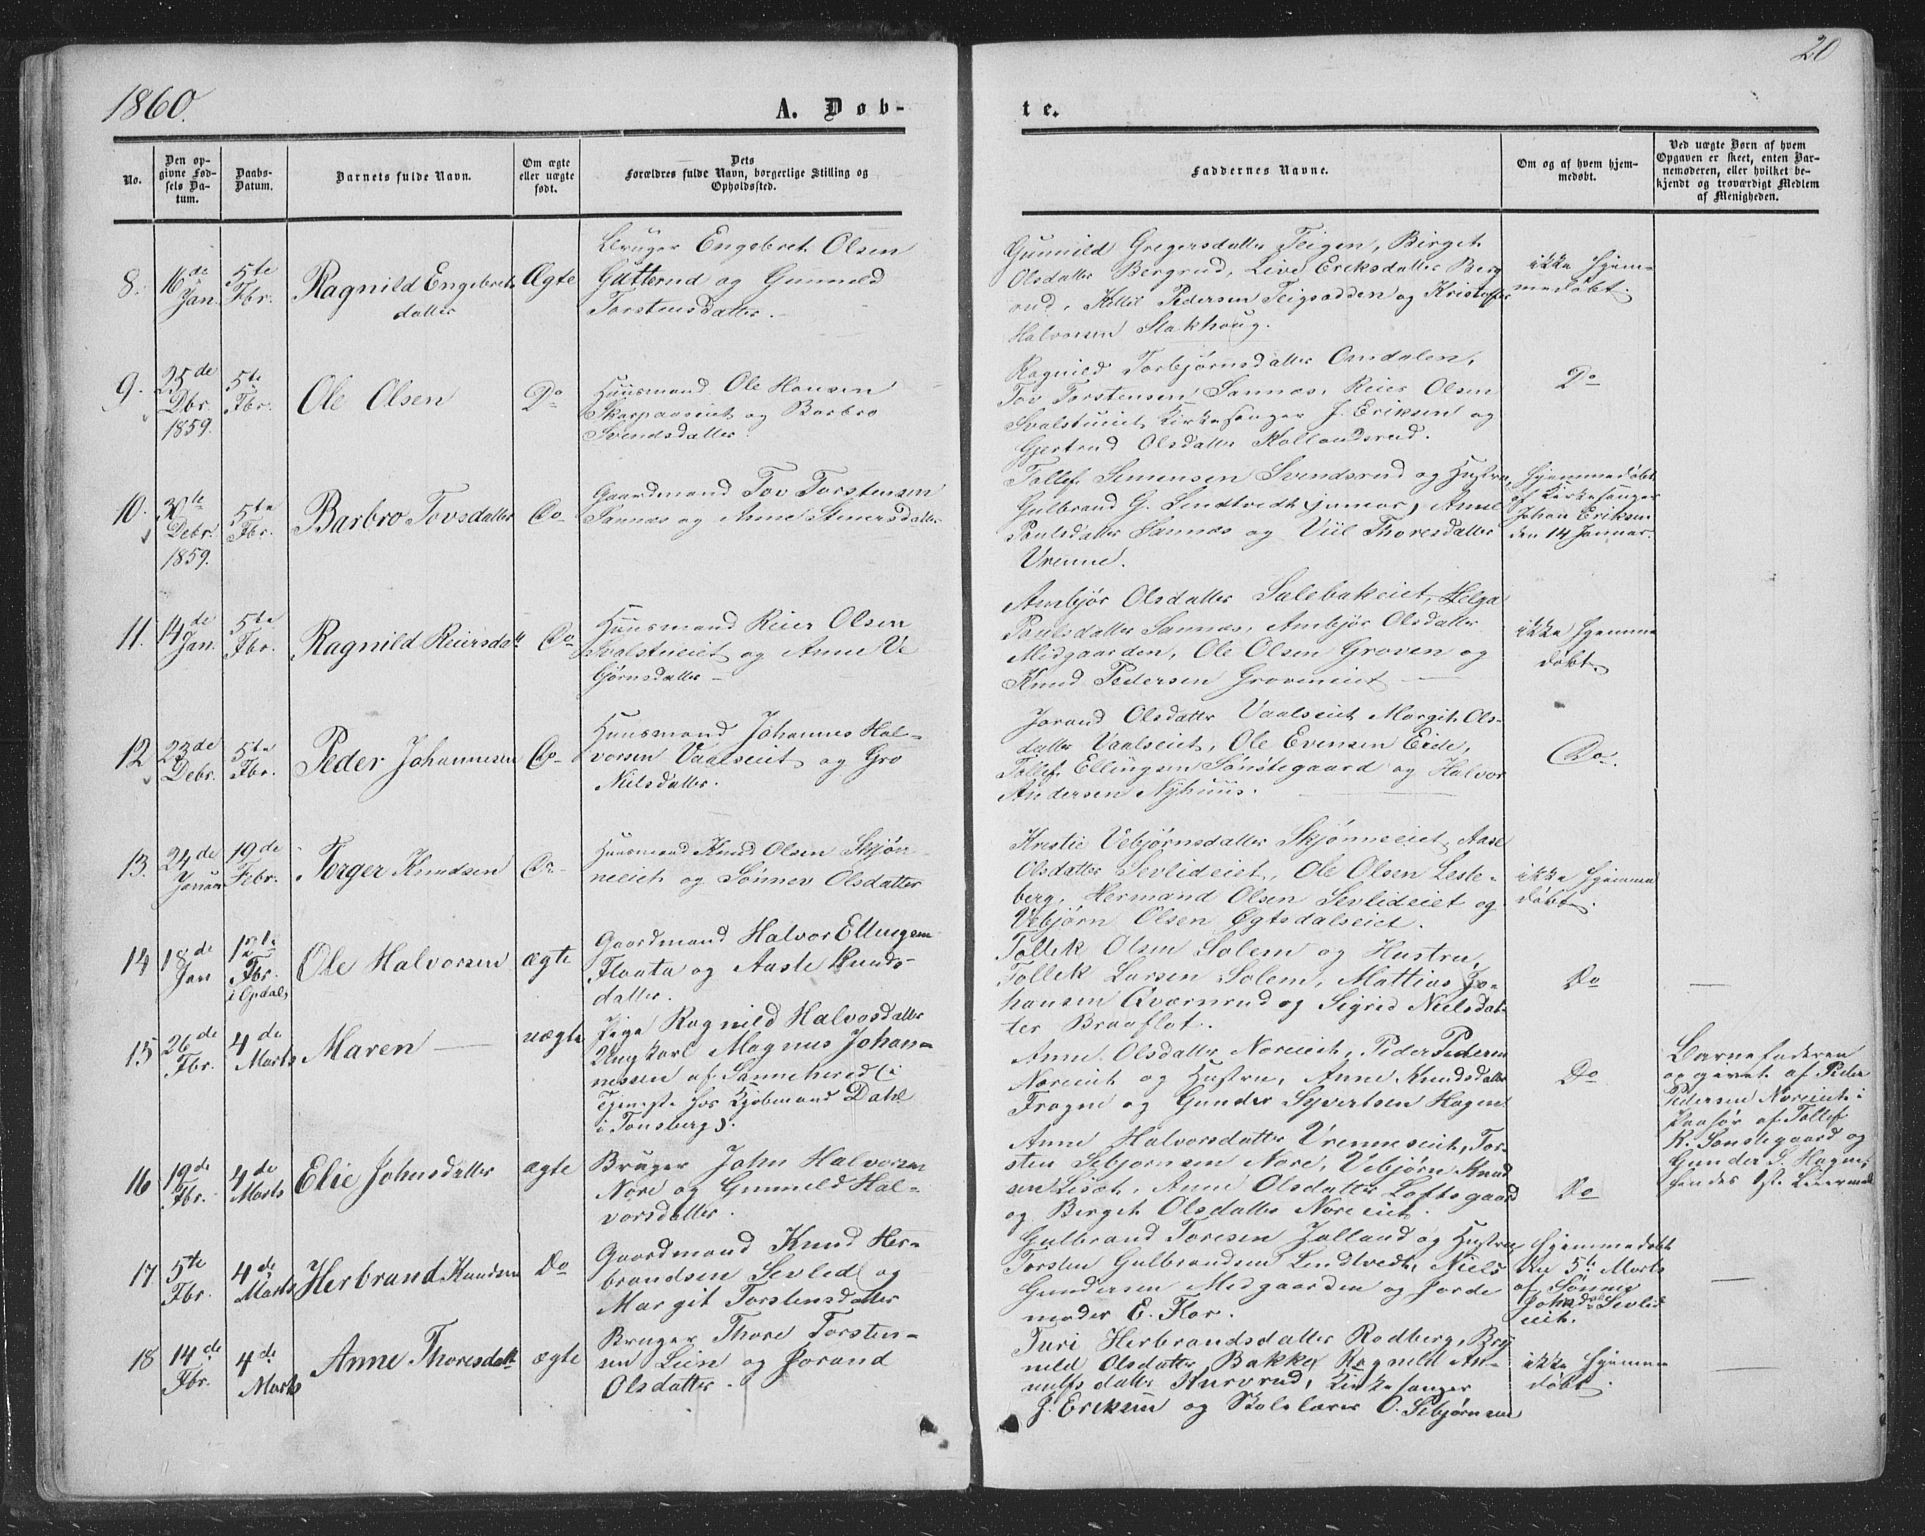 1860.
A. Døb-
te.
20
No.
Den op-
givne Fød-
sels Da-
tum.
Daabs-
Datum.
Barnets fulde Navn.
Om ægte
eller uægte
født.
Dets
Forældres fulde Navn, borgerlige Stilling og
Opholdssted.
Faddernes Navne.
Om og af hvem hjem-
medøbt.
Ved uægte Børn af hvem
Opgaven er skeet, enten Bar-
nemoderen, eller hvilket be-
kjendt og troværdigt Medlem
af Menigheden.
8.
16de
Jan
5te
Fbr.
Ragnild Engebrets
datter
Ægte
Bruger Engebret Olsen
Gutterud og Gunnild
Torstensdatter.
Gunnild Gregersdatter Teigen, Birget
Olsdatter Bergrud, Live Eriksdatter Berg
rud, Killil Pedersen Teigsodden og Kristoffer
Halvorsen Slakhoug.
ikke hjem-
medøbt.
9.
25de
Dbr.
1859.
5te
Fbr.
Ole Olsen
Do
Huusmand Ole Hansen
Skarpaaseiet og Barbro
Svendsdatter.
Ragnild Torbjørnsdatter Omdalen,
Tov Torstensen Sannæs, Reier Olsen
Svalstueiet, Kirkesanger J. Eriksen og
Gjertrud Olsdatter Hollandsrud.
Do
10.
30te
Debr.
1859.
5te
Fbr.
Barbro Tovsdatter
Do
Gaardmand Tov Torstensen
Sannæs og Anne Steners datter
Tollef Simensen Svendsrud og Hustru,
Gulbrand G. Lindtvedt junior, Anne
Poulsdatter Sannæs og Viil Thoresdatter
Vrenne.
Hjemmedøbt
af Kirkesanger
Johan Eriksen
den 14 Januar.
11.
14de
Jan.
5te
Fbr.
Ragnild Reiersdatt
Do
Huusmand Reier Olsen
Svalstueiet og Anne Ve
bjørnsdatter
Ambjør Olsdatter Salebakeiet, Helga
Poulsdatter Sannæs, Ambjør Olsdatter
Midgaarden, Ole Olsen Groven og
Knud Pedersen Groveneiet
ikke hjemme
døbt.
12
23de
Debr.
5te
Fbr.
Peder Johannesen
Do
Huusmand Johannes Hal-
vorsen Vaalseiet og Gro
Nilsdatter.
Jorand Olsdatter Vaalseiet Margit Ols-
datter Vaalseiet, Ole Evensen Eide,
Tollef Ellingsen Sønstegaard og Halvor
Andersen Nyhuus.
Do.
13.
24de
Januar
19de
Febr.
Torger Knudsen
Do
Huusmand Knud Olsen Skjøn
neeiet og Sønnev Olsdatter
Kristie Vebjørnsdatter Skjønneeiet, Aase
Olsdatter Sevlideiet, Ole Olsen Leste-
berg, Hermand Olsen Sevlideiet og
Vebjørn Olsen Øgtsdalseiet.
ikke hjemme
døbt.
14
18de
Jan
12te
Fbr.
i Opdal,
Ole Halvorsen
ægte
Gaardmand Halvor Ellingsen
Flaata og Aaste Knuds-
datter.
Tollek Olsen Solem og Hustru,
Tollek Larsen Solem, Mattias Jo-
hansen Qværnrud og Sigrid Nielsdat-
ter Braaflot.
Do
15
26de
Fbr.
4de
Marts
Maren
uægte
Pige Ragnild Halvorsdatter
Ungkarl Magnus Johan-
nessen af Sannehered (i
Tjeneste hos Kjøbmand Dahl
i Tønsberg).
Anne Olsdatter Noreeiet, Peder Pedersen
Noreeiet og Hustru, Anne Knudsdatter
Fragne og Gunder Syvertsen Hagen
Do
Barnefaderen
opgivet af Peder
Pedersen Noreeiet i
Paahør af Tollef
K. Sønstegaard og
Gunder S. Hagen;
hendes 1ste Leiermaal
16
19de
Fbr.
4de
Marts
Elie Johnsdatter
ægte
Bruger John Halvorsen
Nore og Gunnild Hal-
vorsdatter.
Anne Halvorsdatter Vrenneseiet, Tor-
sten Sebjørnsen Nore, Vebjørn Knud
sen Liset, Anne Olsdatter Loftsgaard
og Birgit Olsdatter Noreeiet.
Do
17
5te
Fbr.
4de
Marts
Herbrand Knudsen
Do
Gaardmand Knud Her-
brandsen Sevled og
Margit Torstensdatter
Gulbrand Toresen Jolland og Hustru
Torsten Gulbrandsen Lindtvedt, Niels
Gundersen Midgaarden og Jorde
moder E. Flor.
Hjemmedøbt
den 5te Marts
af Sønnev
Johnsdatr Sevled
eiet.
18
14de
Fbr.
4de
Marts
Anne Thoresdatt
ægte
Bruger Thore Torsten-
sen Lein og Jorand
Olsdatter.
Turi Herbrandsdatter Rodberg, Bry
nild Olsdatter Bakke, Ragnild An-
nulfsdatter Kurvrud, Kirkesanger
J. Eriksen og Skolelærer O. Sebjørnsen
ikke hjemme
døbt.